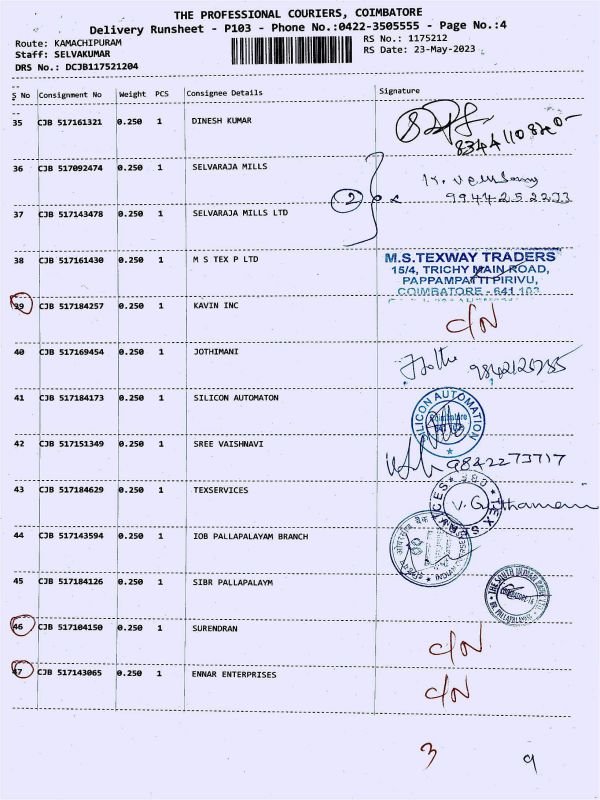 THE PROFESSIONAL COURIERS, COIMBATORE
Delivery Runsheet - P103 - Phone No.:0422-3505555 - Page No.:4
Route: KAMACHIPURAM RS No.: 1175212
Staff: SELVAKUMAR RS Date: 23-May-2023
DRS No.: DCJB117521204
S No Consignment No Weight PCS Consignee Details Signature
35 CJB 517161321 0.250 1 DINESH KUMAR
36 CJB 517092474 0.250 1 SELVARAJA MILLS
9944252233
2
37 CJB 517143478 0.250 1 SELVARAJA MILLS LTD
38 CJB 517161430 0.250 1 M S TEX P LTD
M.S.TEXWAY TRADERS
15/4, TRICHY MAIN ROAD,
PAPPAMPATTI PIRIVU,
COIMBATORE - 641 103
39 CJB 517184257 0.250 1 KAVIN INC C/N
40 CJB 517169454 0.250 1 JOTHIMANI
41 CJB 517184173 0.250 1 SILICON AUTOMATON
SILICON AUTOMATION
42 CJB 517151349 0.250 1 SREE VAISHNAVI 9842273717
43 CJB 517184629 0.250 1 TEXSERVICES
TEX SERVICES
44 CJB 517143594 0.250 1 IOB PALLAPALAYAM BRANCH
45 CJB 517184126 0.250 1 SIBR PALLAPALAYM
THE SOUTH INDIAN BANK LTD
46 CJB 517104150 0.250 1 SURENDRAN C/N
47 CJB 517143065 0.250 1 ENNAR ENTERPRISES C/N
3 9